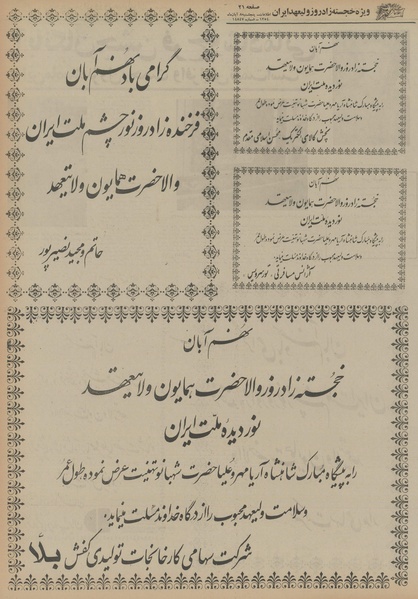 ویژه خجسته زادروز ولیعهد ایران
صفحه ۲۱
نهم آبان
خجسته زادروز والاحضرت همایون ولایتعهد
نور دیده ملت ایران
را به پیشگاه مبارک شاهنشاه آریامهر و علیاحضرت شهبانو تهنیت عرض نموده طول عمر
و سلامت ولیعهد محبوب را از درگاه خداوند مسئلت مینماید.
پخش کالای الکتریک
نهم آبان
خجسته زادروز والاحضرت همایون ولایتعهد
نور دیده ملت ایران
را به پیشگاه مبارک شاهنشاه آریامهر و علیاحضرت شهبانو تهنیت عرض نموده طول عمر
و سلامت ولیعهد محبوب را از درگاه خداوند مسئلت مینماید.
آژانس مسافرتی
گرامی باد نهم آبان
فرخنده زادروز نور چشم ملت ایران
والاحضرت همایون ولایتعهد
حاتم و مجید نصیرپور
نهم آبان
خجسته زادروز والاحضرت همایون ولایتعهد
نور دیده ملت ایران
را به پیشگاه مبارک شاهنشاه آریامهر و علیاحضرت شهبانو تهنیت عرض نموده طول عمر
و سلامت ولیعهد محبوب را از درگاه خداوند مسئلت مینماید.
شرکت سهامی کارخانجات تولیدی کفش بلا